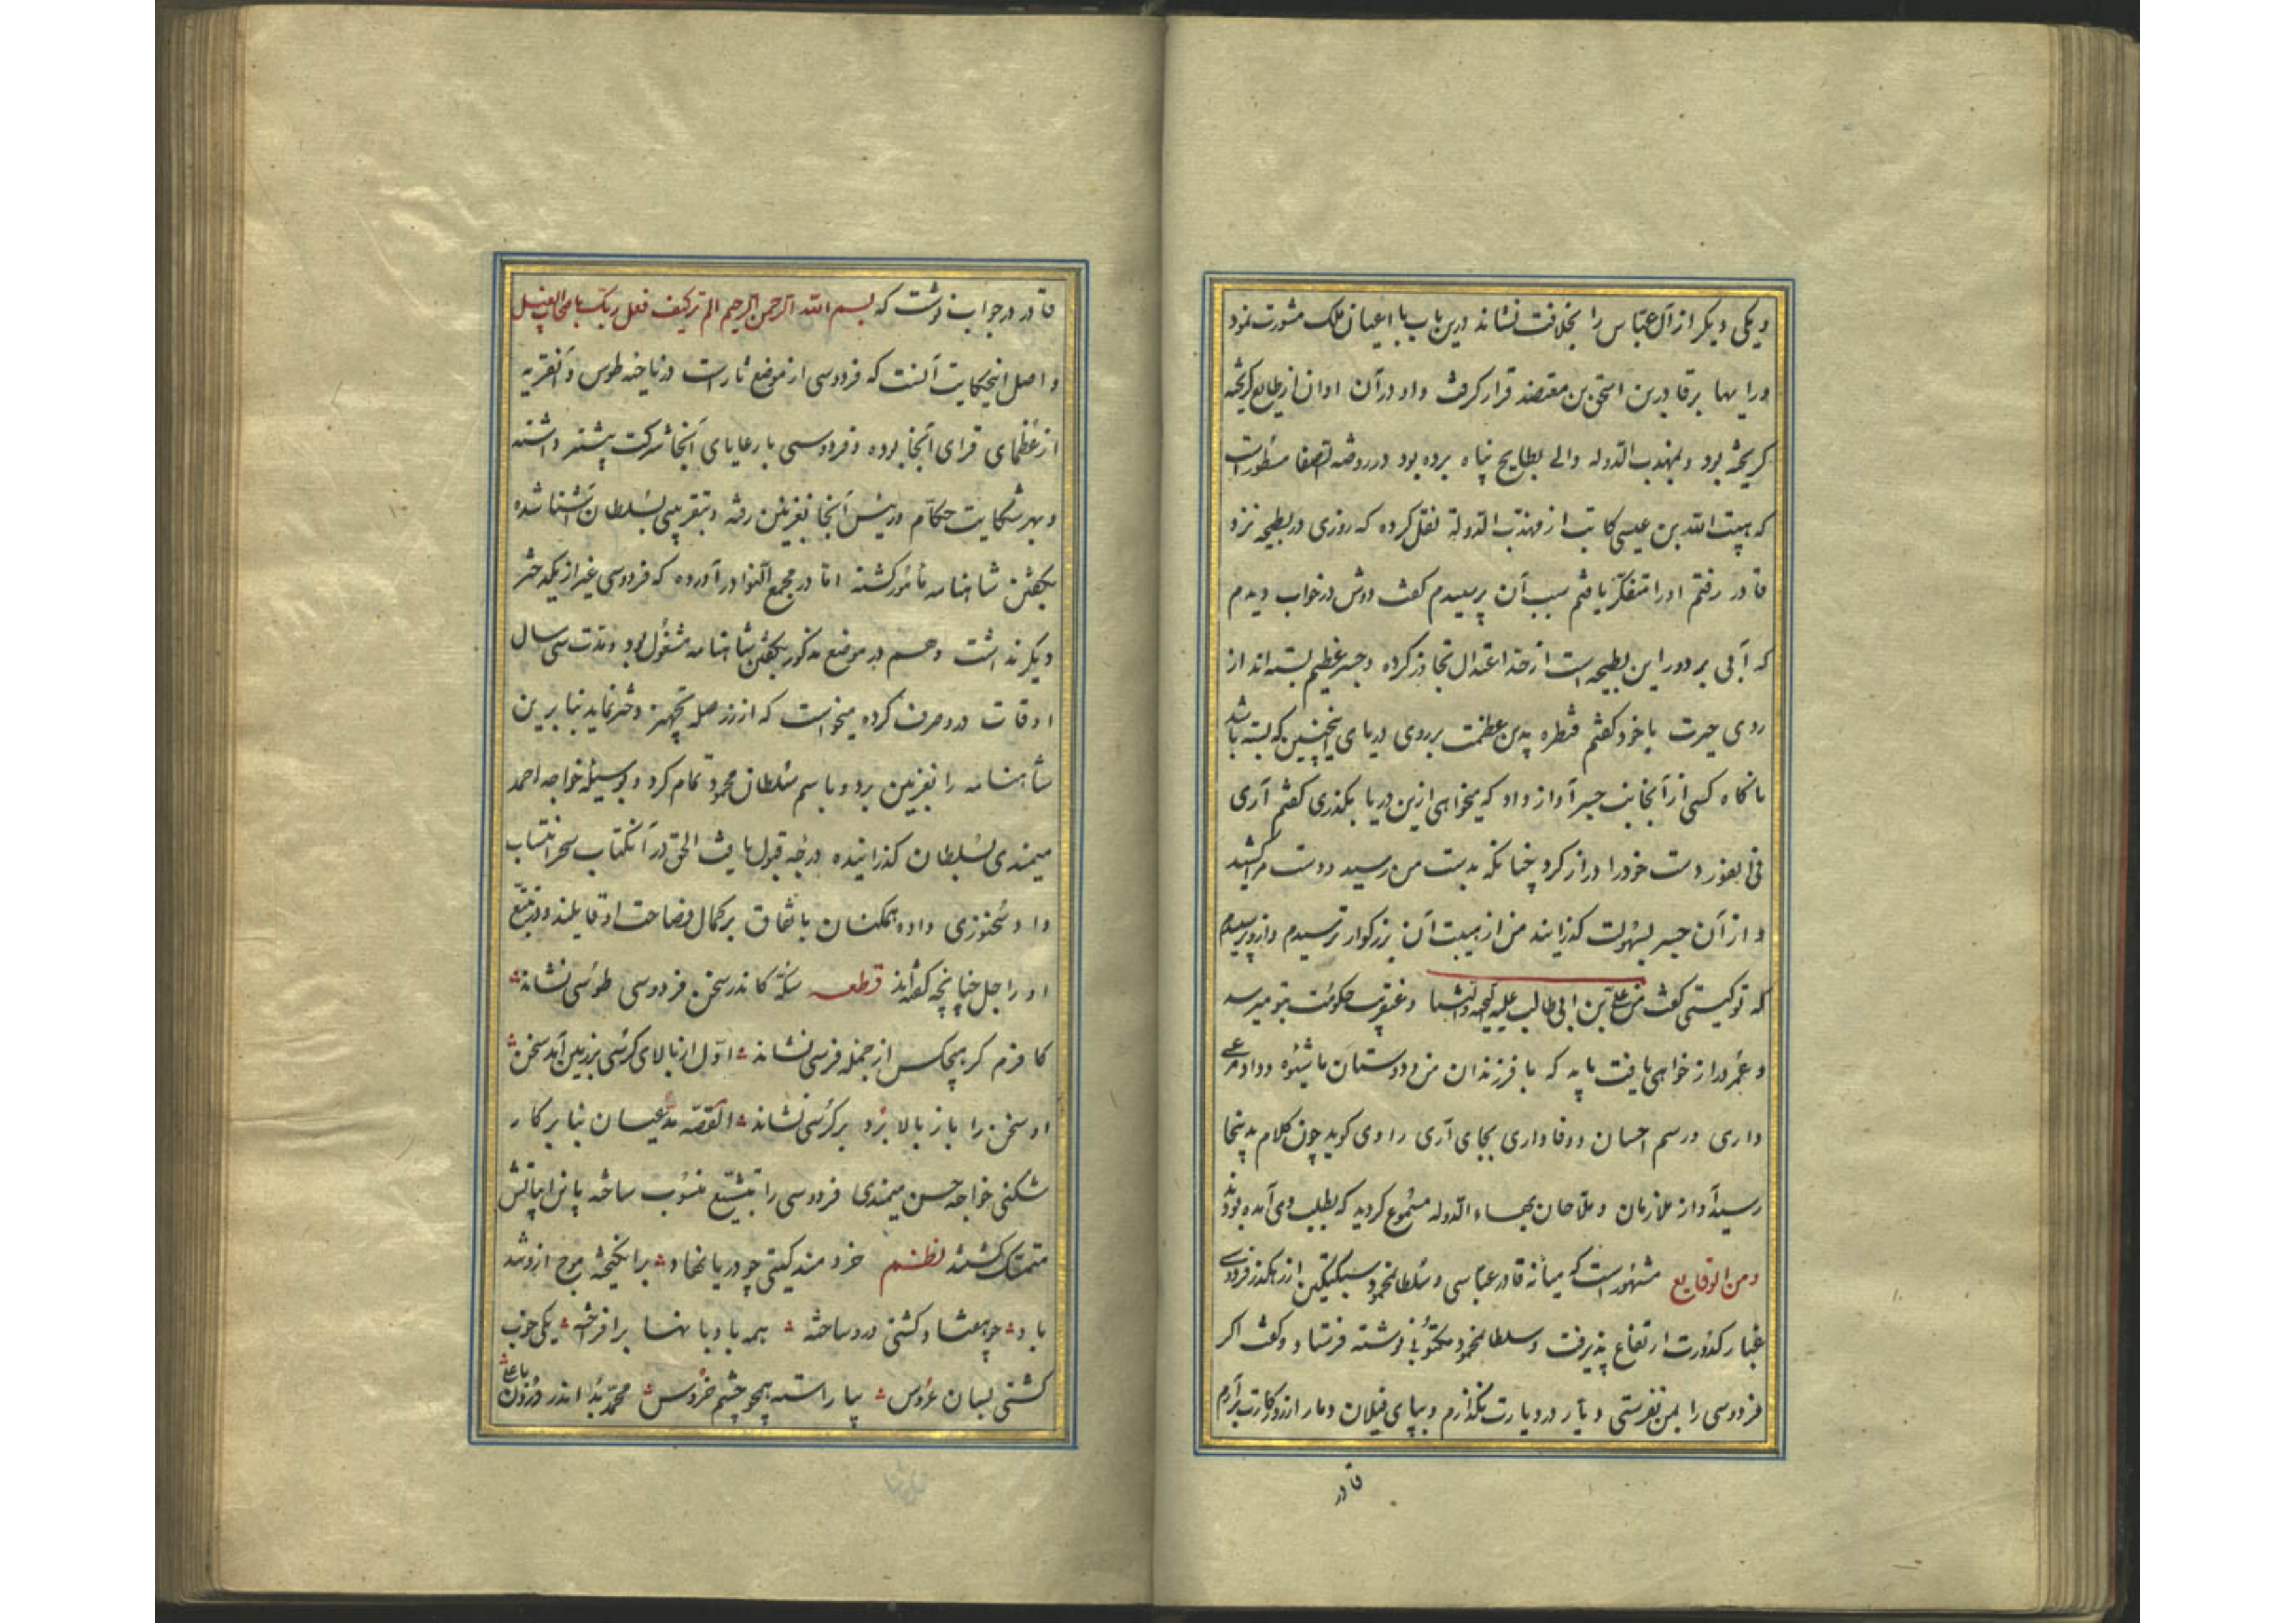 و یکی دیکر از آل عباس را بخلافت نشاند درین باب با اعیان ملک مشورت نمود
ورایها بر قادر بن اسحق بن مقتضد قرار کرفت و او در آن اوان از طایع کریخته
کریخته بود و بمهذب الدوله والی بطایح پناه برده بود در روضه الصفا مسطور است
که هیبت الله بن عیسی کاتب از مهذب الدولة نقل کرده که روزی در بطیحه نزد
قادر رفتم او را متفکر یافتم سبب آن پرسیدم کفت دوش در خواب دیدم
که آبی بر دور این بطیحه است از حد اعتدال تجاوز کرده و جسر عظیم بسته اند از
روی حیرت با خود کفتم قنطره بدین عظمت بر روی دریای اینچنین که بسته باشد
ناکاه کسی از آنجانب جسر آواز داد که میخواهی ازین دریا بکذری کفتم آری
فی الفور دست خود را دراز کرد چنانکه بدست من رسید و دست مرا کشید
و از آن جسر بسهولت کذرانید من از هیبت آن بزرکوار ترسیدم و ازو پرسیدم
که تو کیستی کفت من علی بن ابی طالب علیه التحیه والثنا و عنقریب حکومت بتو میرسد
و عمر دراز خواهی یافت باید که با فرزندان من و دوستان ما شیوه و داد مرعی
داری و رسم احسان و وفاداری بجای آری راوی کوید چون کلام بدینجا
رسید آواز ملازمان و ملاحان بهاء الدوله مسموع کردید که بطلب وی آمده بودند
ومن الوقایع مشهور است که میانه قادر عباسی و سلطان محمود سبکتکین از رهکذر فردوسی
غبار کدورت ارتفاع پذیرفت و سلطان محمود مکتوبی نوشته فرستاد و کفت اکر
فردوسی را بمن نفرستی دیار در دیارت نکذارم و بپای فیلان دمار از روزکارت برآرم
قادر
قادر در جواب نوشت که بسم الله الرحمن الرحیم الم تر کیف فعل ربک باصحاب الفیل
و اصل اینحکایت آنست که فردوسی از موضع ثار است در ناحیه طوس و آنقریه
از عظمای قرای آنجا بوده و فردوسی با رعایای آنجا شرکت بیشتر داشته
و بهر شکایت حکام و رئیس آنجا بغزنین رفته و بتقریبی بسلطان آشنا شده
بکفتن شاهنامه مأمور کشته اما در مجمع النوادر آورده که فردوسی غیر از یکدختر
دیکر نداشت و هم در موضع مذکور بکفتن شاهنامه مشغول بود و مدت سی سال
اوقات درو صرف کرده میخواست که از زر صله تجهیز دختر نماید بنابرین
شاهنامه را بغزنین برد و باسم سلطان محمود تمام کرد و بوسیله خواجه احمد
میمندی بسلطان کذرانیده درجه قبول یافت الحق در آنکتاب سحر انتساب
داد سخنوری داده همکنان باتفاق بر کمال فصاحت او قایلند و در تتبع
او راجل چنانچه کفته اند قطعه سکه کاندر سخن فردوسی طوسی نشاند
کافرم کر هیچکس از جمله فرسی نشاند اول از بالای کرسی بر زمین آمد سخن
او سخن را باز بالا برد و بر کرسی نشاند القصه مدعیان بنابر کار
شکنی خواجه حسن میمندی فردوسی را بتشیع منسوب ساخته باین ابیاتش
متمسک کشتند نظم خردمند کیتی چو دریا نهاد برانکیخته موج ازو تند
باد چو هفتاد کشتی درو ساخته همه بادبانها برافراخته یکی خوب
کشتی بسان عروس بیاراسته همچو چشم خروس محمد بدو اندرون با علی